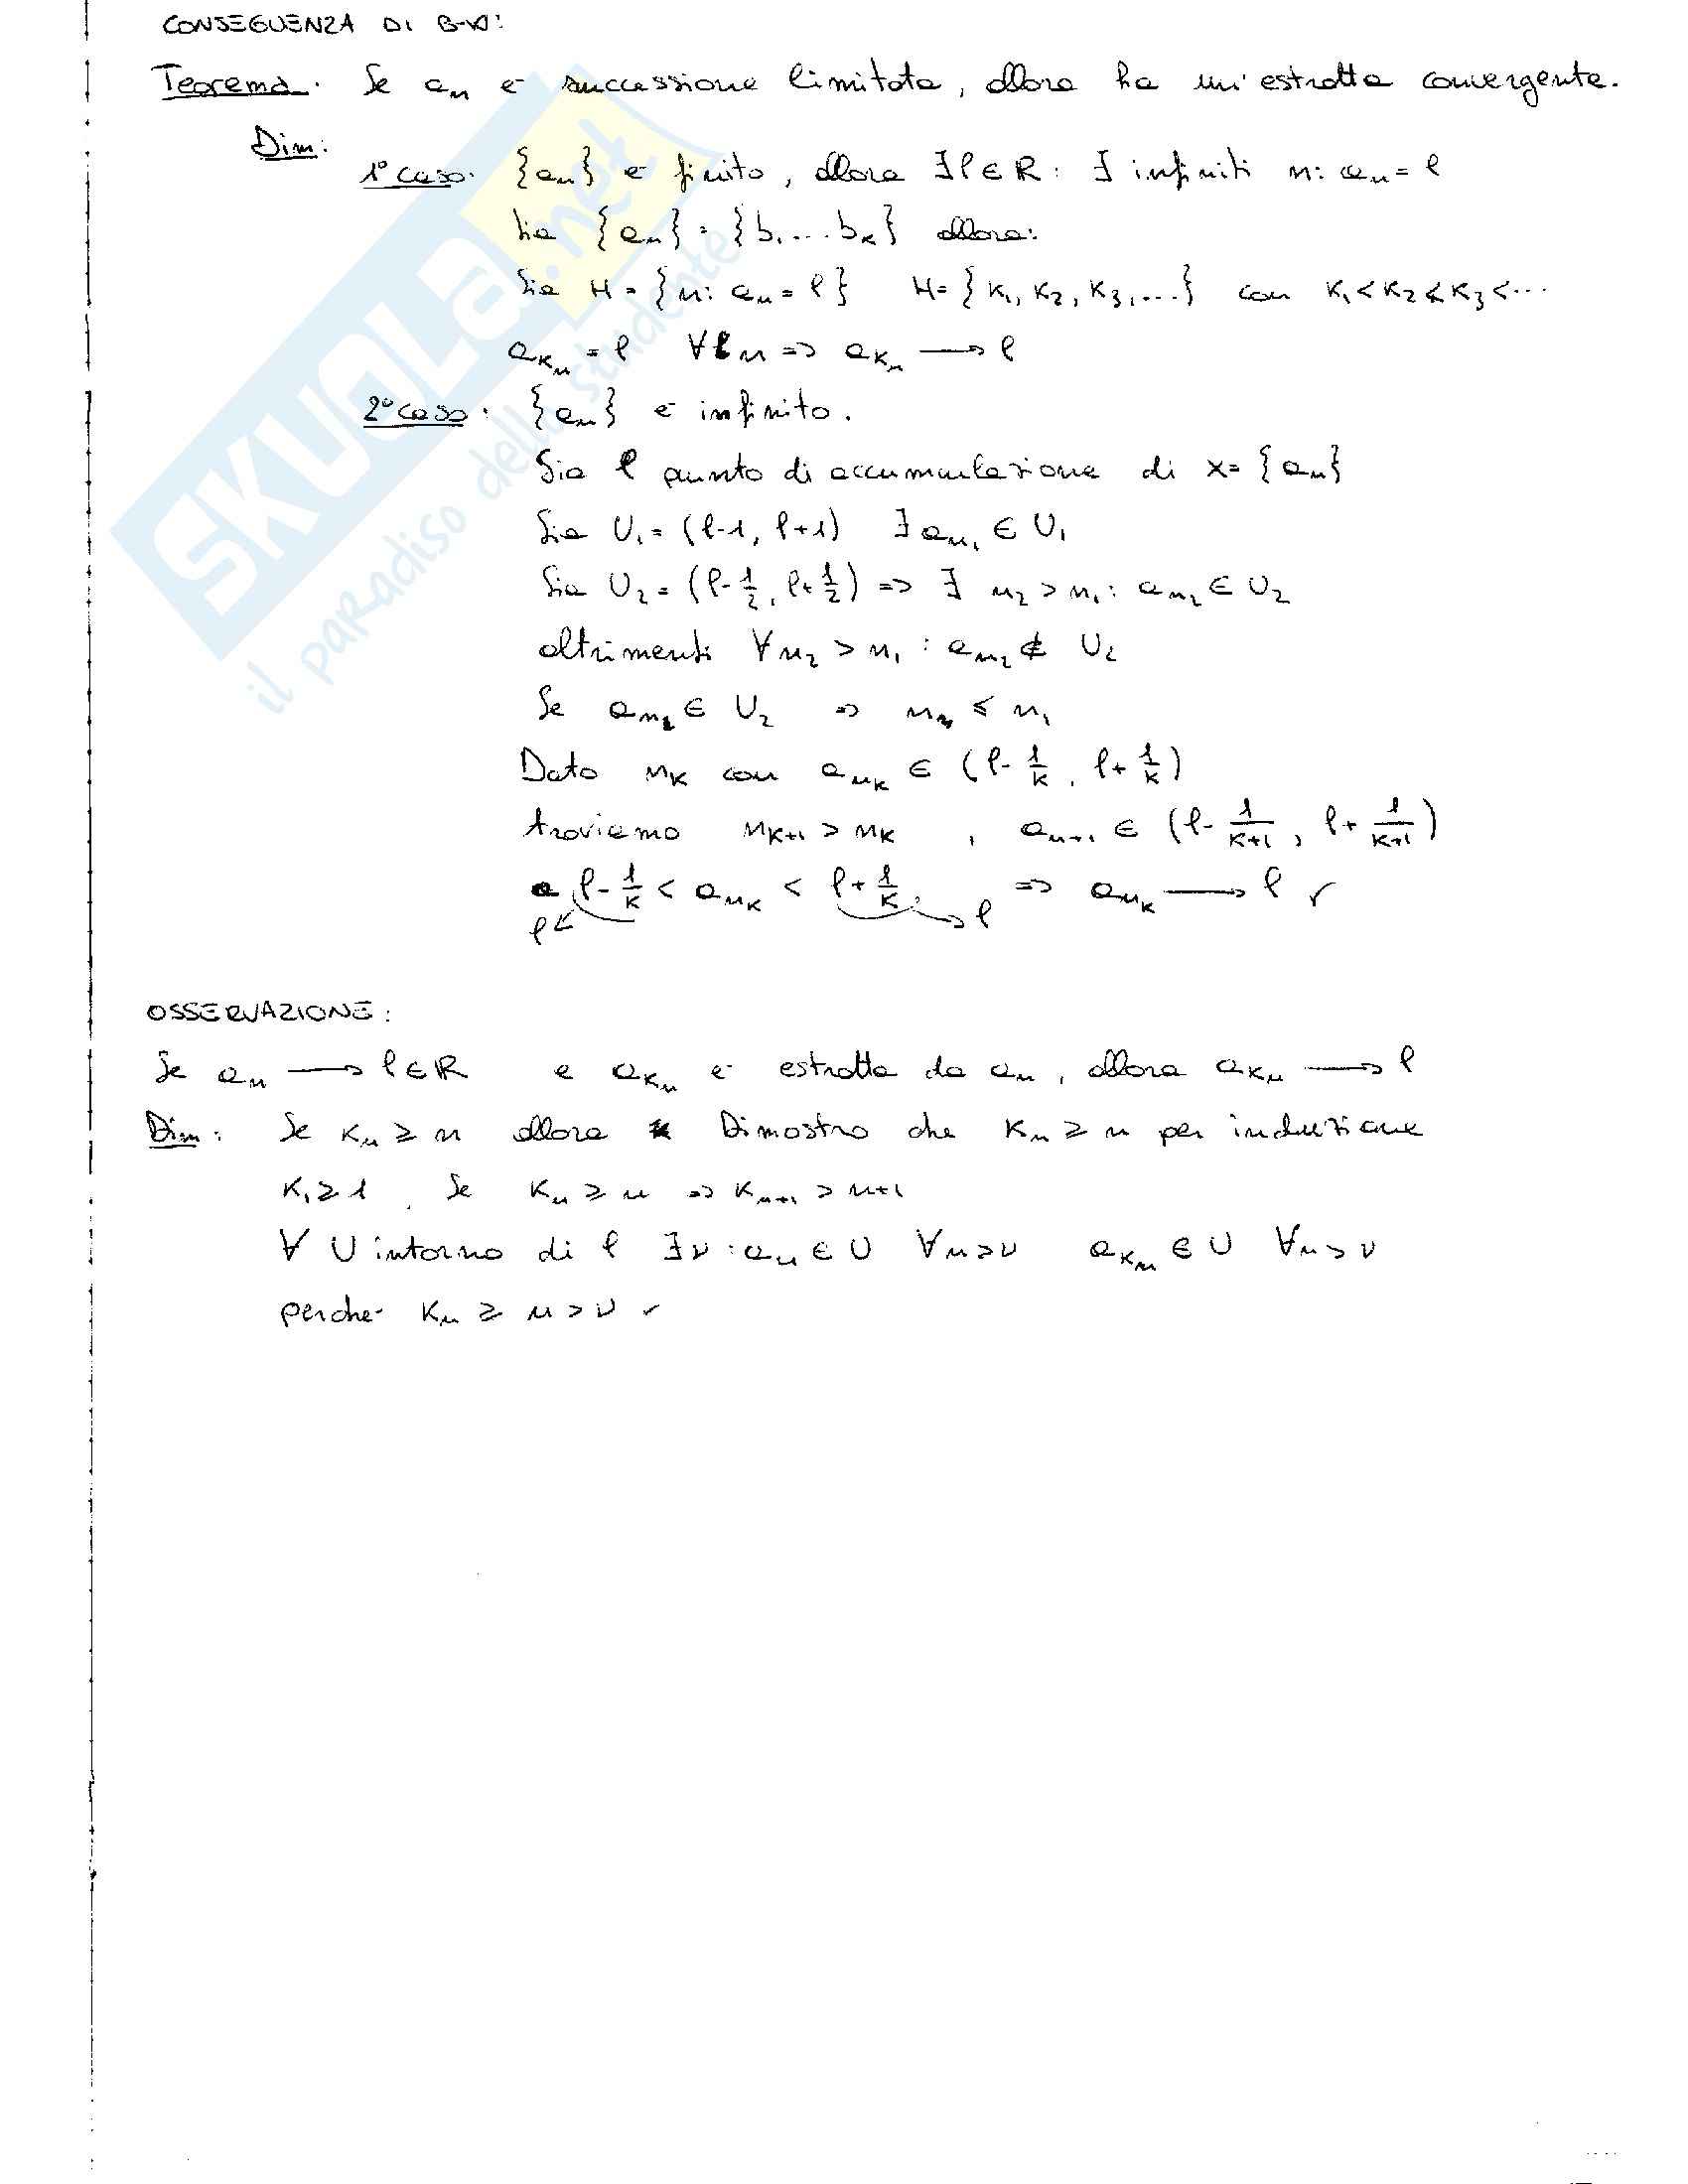 CONSEGUENZA DI B-W:
Teorema. Se aₙ è successione limitata, allora ha un'estratta convergente.
Dim:
1° caso. {aₙ} è finito, allora ∃ℓ∈ℝ: ∃ infiniti n: aₙ = ℓ
Sia {aₙ} = {b₁...bₖ} allora:
Sia H = {n: aₙ = ℓ} H = {k₁, k₂, k₃, ...} con k₁<k₂<k₃<...
a_{kₙ} = ℓ ∀n => a_{kₙ} → ℓ
2° caso. {aₙ} è infinito.
Sia ℓ punto di accumulazione di X = {aₙ}
Sia U₁ = (ℓ-1, ℓ+1) ∃ a_{n₁} ∈ U₁
Sia U₂ = (ℓ-1/2, ℓ+1/2) => ∃ n₂ > n₁: a_{n₂} ∈ U₂
altrimenti ∀n₂ > n₁: a_{n₂} ∉ U₂
Se a_{n₂} ∈ U₂ => n₂ ≤ n₁
Dato nₖ con a_{nₖ} ∈ (ℓ-1/k, ℓ+1/k)
troviamo nₖ₊₁ > nₖ, aₙ₊₁ ∈ (ℓ-1/(k+1), ℓ+1/(k+1))
ℓ-1/k < a_{nₖ} < ℓ+1/k => a_{nₖ} → ℓ ✓
ℓ ℓ
OSSERVAZIONE:
Se aₙ → ℓ∈ℝ e a_{kₙ} è estratta da aₙ, allora a_{kₙ} → ℓ
Dim: Se kₙ ≥ n allora Dimostro che kₙ ≥ n per induzione
k₁ ≥ 1. Se kₙ ≥ n => kₙ₊₁ > n+1
∀ U intorno di ℓ ∃ν: aₙ ∈ U ∀n>ν a_{kₙ} ∈ U ∀n>ν
perché kₙ ≥ n > ν ✓
SKUOLA.net
il paradiso dello studente